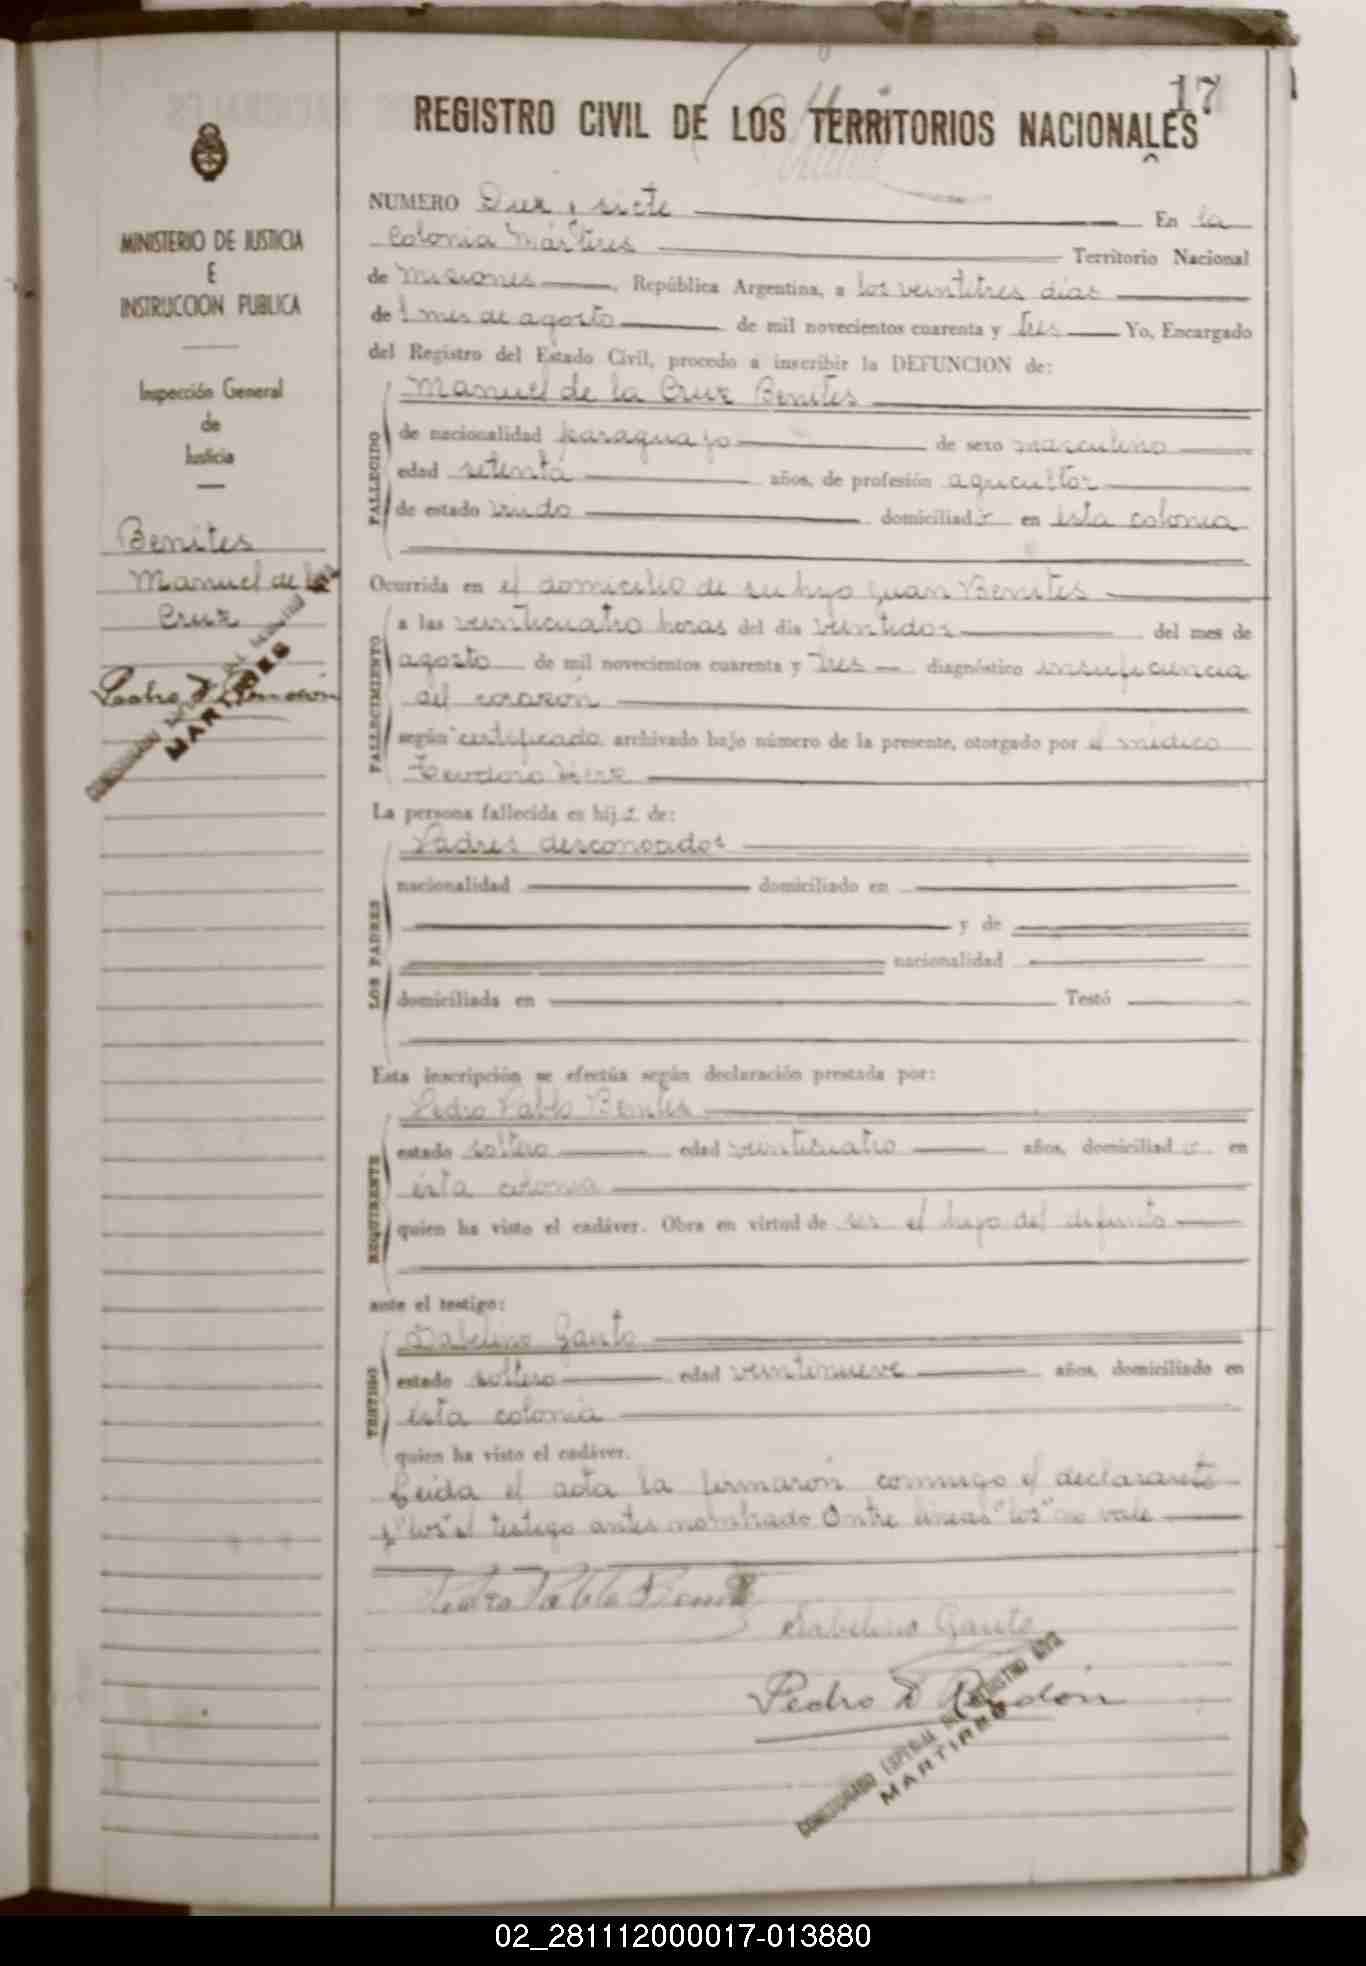 17
REGISTRO CIVIL DE LOS TERRITORIOS NACIONALES
MINISTERIO DE JUSTICIA
E
INSTRUCCION PUBLICA
Inspección General
de
Justicia
Benites
Manuel de la
Cruz
MARTIRES
NUMERO Diez y siete En la
Colonia Mártires Territorio Nacional
de Misiones, República Argentina, a los veintitres dias
del mes de agosto de mil novecientos cuarenta y tres Yo, Encargado
del Registro del Estado Civil, procedo a inscribir la DEFUNCION de:
FALLECIDO
Manuel de la Cruz Benites
de nacionalidad paraguayo de sexo masculino
edad setenta años, de profesión agricultor
de estado viudo domiciliado en ésta colonia
Ocurrida en el domicilio de su hijo Juan Benites
FALLECIMIENTO
a las veinticuatro horas del dia veintidos del mes de
agosto de mil novecientos cuarenta y tres diagnóstico insuficiencia
del corazón
según certificado archivado bajo número de la presente, otorgado por el médico
Teodoro
La persona fallecida es hijo de:
LOS PADRES
Padres desconocidos
nacionalidad domiciliado en
y de
nacionalidad
domiciliada en Testó
Esta inscripción se efectúa según declaración prestada por:
REQUIRENTE
Pedro Pablo Benites
estado soltero edad veinticuatro años, domiciliado en
ésta colonia
quien ha visto el cadáver. Obra en virtud de ser el hijo del difunto
ante el testigo:
TESTIGO
Sabelino Gauto
estado soltero edad veintinueve años, domiciliado en
ésta colonia
quien ha visto el cadáver.
Leida el acta la firmarón conmigo el declarante
y "los" el testigo antes nombrado Entre lineas "los" no vale
Pedro Pablo Benitez
Sabelino Gauto
Pedro
COMISARIADO ESPECIAL DEL REGISTRO CIVIL
MARTIRES
02_281112000017-013880